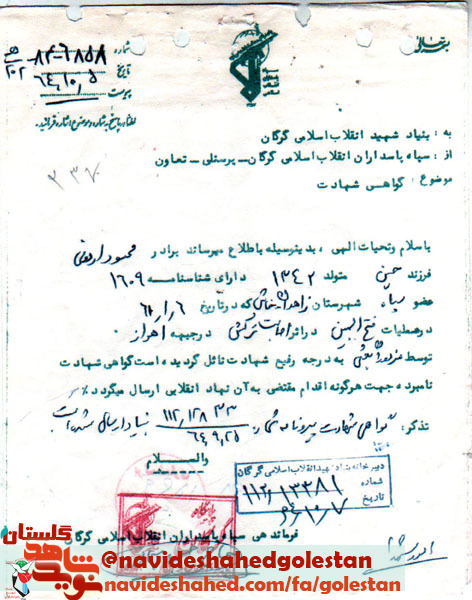 بسمه تعالی
شماره ۸۴-۶۸۵۸
تاریخ ۶۴/۱۰/۵
پیوست
به : بنیاد شهید انقلاب اسلامی گرگان
از : سپاه پاسداران انقلاب اسلامی گرگان_ پرسنلی_ تعاون
موضوع : گواهی شهادت
۳۳۷۰
باسلام وتحیات الهی ، بدینوسیله باطلاع میرساند برادر محمود
فرزند حسن متولد ۱۳۴۲ دارای شناسنامه ۱۶۰۹
عضو سپاه شهرستان زاهدان که درتاریخ ۶۱/۱/۶
درعملیات فتح المبین دراثر اصابت ترکش درجبهه اهواز
توسط به درجه رفیع شهادت نائل گردیده است گواهی شهادت
نامبرده جهت هرگونه اقدام مقتضی به آن نهاد انقلابی ارسال میگردد
تذکر : گواهی شهادت
۶۴/۹/۲۵
والسلام
دبیرخانه بنیاد شهید انقلاب اسلامی گرگان
شماره ۱۱۲/۱۳۳۸۱
تاریخ ۶۴/۱۰/۷
فرماندهی سپاه پاسداران انقلاب اسلامی گرگان
نوید شاهد گلستان
@navideshahedgolestan
navideshahed.com/fa/golestan